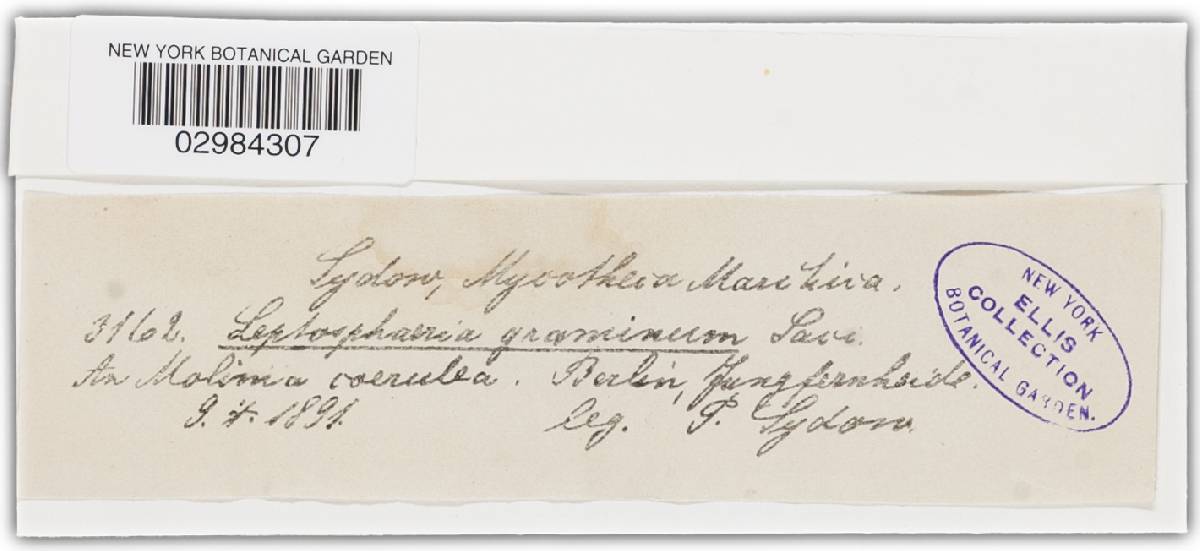 NEW YORK BOTANICAL GARDEN
02984307
Sydow, Mycotheca Marchica.
3162. Leptosphaeria graminum Sacc.
An Molinia coerulea. Berlin, Jungfernheide.
1891. leg. P. Sydow
NEW YORK
ELLIS
COLLECTION
BOTANICAL GARDEN.